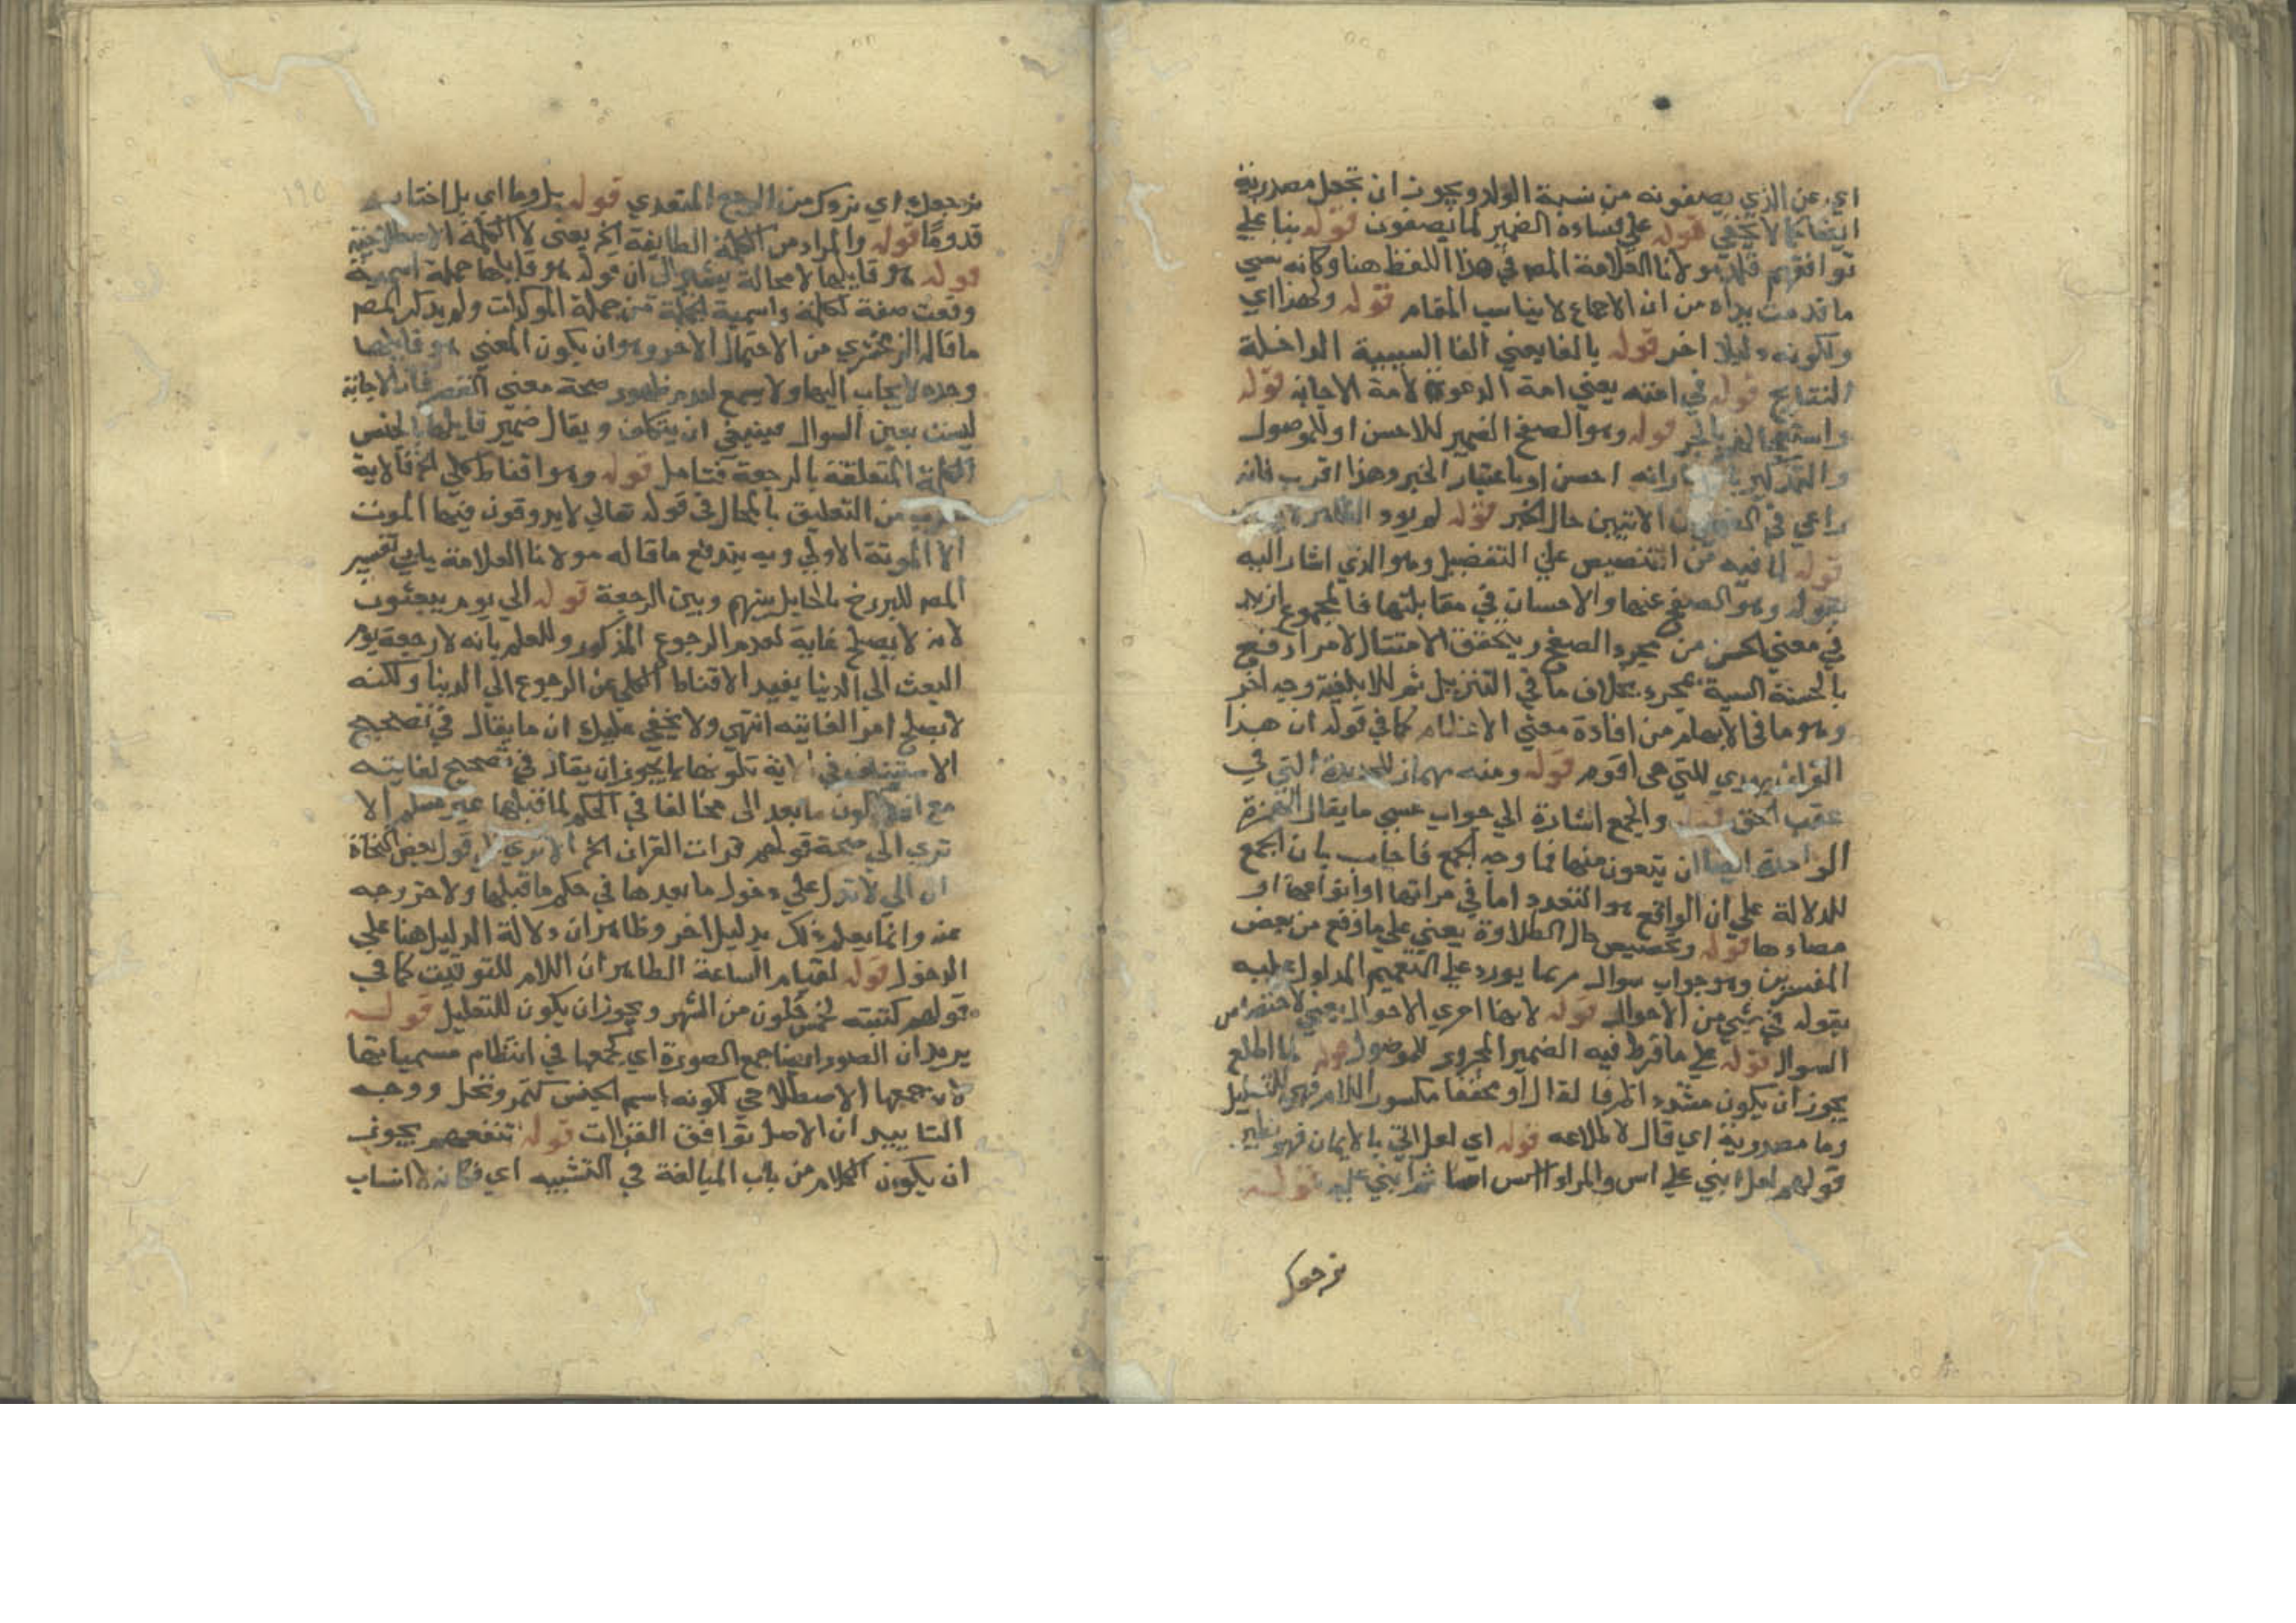 اي عن الذي يصفونه من نسبة الولد ويجوز ان تجعل مصدرية
ايضا كما لا يخفي قوله علي فساده الضمير لما يصفون قوله بنا علي
توافقهم قلد مولانا العلامة المص في هذا اللفظ هنا وكانه نسي
ما قدمت يداه من ان الاجماع لا يناسب المقام قوله ولهذا اي
ولكونه دليلا اخر قوله بالفا يعني الفا السببية الداخلة
النتايج قوله في امته يعني امة الدعوة لا امة الاجابة قوله
قوله وهو الصفح الضمير للاحسن او للموصول
والتذكير احسن او باعتبار الخبر وهذا اقرب فانه
راعي في الاتيين حال الخبر قوله لم يود
قوله لما فيه من التنصيص علي التفضيل وهو الذي اشار اليه
بقوله وهو الصفح عنها والاحسان في مقابلتها فالمجموع ازيد
في معني الحسن من مجرد الصفح ويتحقق الامتثال لامر ادفع
بالحسنة السية بمجرده بخلاف ما في التنزيل ثم للابلغية وجه اخر
وهو ما في الابهام من افادة معني الاعظام كما في قوله ان هذا
القران يهدي للتي هي اقوم قوله ومنه مهماز للحديدة التي في
عقب الخق والجمع اشارة الي جواب عسي ما يقال الهمزة
الواحدة ايضا ان يتعون منها فما وجه الجمع فاجاب بان الجمع
للدلالة علي ان الواقع هو التعدد اما في مراتها او انواعها او
مضاءها قوله وتخصيص حال التلاوة يعني علي ما وقع من بعض
المفسرين وهو جواب سوال مرما يورد علي التعميم المدلول عليه
بقوله في شيء من الاحوال قوله لانها احري الاحوال يعني لاختصاص
السوال قوله علي ما فرط فيه الضمير المجرور للموصول قوله لما اطلع
يجوز ان يكون مشدد الظرفا لقال او مخففا مكسور اللام فهي للتعليل
وما مصدرية اي قال لاطلاعه قوله اي لعل اتي بالايمان فهو نظير
قولهم لعل ابني علي اس والمراد اسس اسا ثم ابني عليه قوله
نرجعك
نرجعك اي نردك من الرجع المتعدي قوله بل وما اي بل اختار
قدوما قوله والمراد من الكلمة الطايفة الخ يعني لا الكلمة الاصطلاحية
قوله هو قايلها لا محالة يشير الي ان قوله هو قايلها جملة اسمية
وقعت صفة لكلمة واسمية الجملة من جملة الموكدات ولم يذكر المص
ما قاله الزمخشري من الاحتمال الاخر وهو ان يكون المعني هو قايلها
وحده لا يجاب اليها ولا يسمع لعدم ظهور صحة معني القصر فان الاجابة
ليست بعين السوال فينبغي ان يتكلف ويقال ضمير قايلها لجنس
الكلمة المتعلقة بالرجعة فتامل قوله وهو اقناط كلي الخ فالاية
من التعليق بالمحال في قوله تعالي لا يذوقون فيها الموت
الا الموتة الاولي وبه يندفع ما قاله مولانا العلامة يابي تفسير
المص للبرزخ بالحايل بينهم وبين الرجعة قوله الي يوم يبعثون
لانه لا يصلح غاية لعدم الرجوع المذكور وللعلم بانه لا رجعة يوم
البعث الي الدنيا يفيد الاقناط الكلي عن الرجوع الي الدنيا ولكنه
لا يصلح امر الغايته انتهي ولا يخفي عليك ان ما يقال في تصحيح
الاستيناف في الاية تكونها يجوز ان يقال في تصحيح لغايته
مع ان كون ما بعد الي مخالفا في الحكم لما قبلها غير مسلم الا
تري الي صحة قولهم قرات القران الخ الا تري الي قول بعض النحاة
ان الي لا تدل علي دخول ما بعدها في حكم ما قبلها ولا خروجه
عنه وانما يعلم ذلك بدليل اخر وظاهر ان دلالة الدليل هنا علي
الدخول قوله لقيام الساعة الظاهر ان اللام للتوقيت كما في
قولهم كتبته لخمس خلون من الشهر ويجوز ان يكون للتعليل قوله
يريد ان الصور ايضا جمع الصورة اي كجمعها في انتظام مسمياتها
لا جمعها الاصطلاحي لكونه اسم الجنس كتمر ونخل ووجه
التاييد ان الاصل توافق القراات قوله تنفعهم يجوز
ان يكون الكلام من باب المبالغة في التشبيه اي فكانه لا انساب